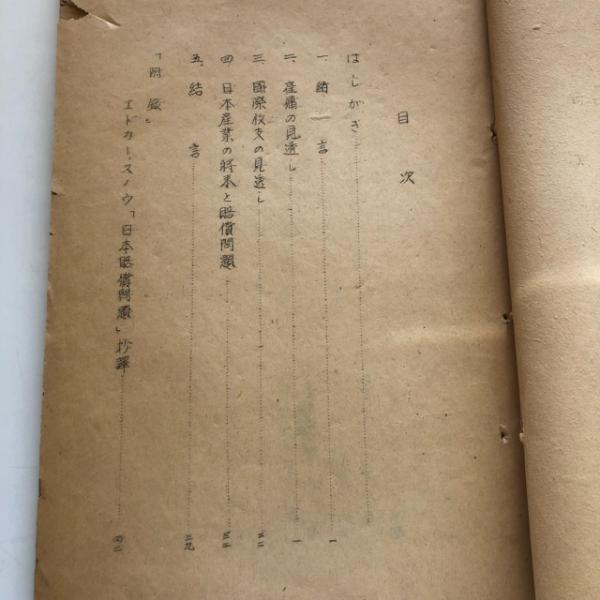 目次
はしがき
一、緒言 一
二、產痛の見透し 一
三、國際收支の見透し 二二
四、日本産業の將來と賠償問題 三三
五、結言 三九
「附錄」
エドガー、スノウ「日本賠償問題」抄譯 四二